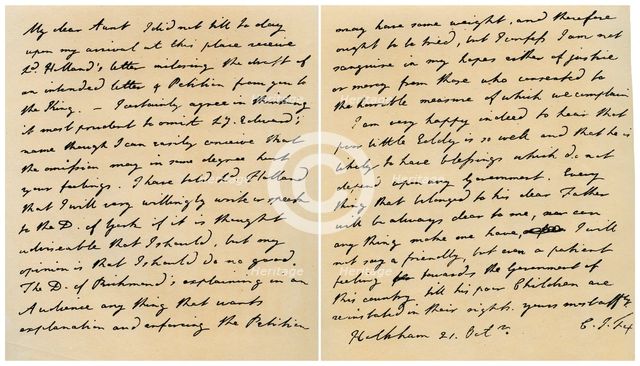 My dear Aunt I did not till to day
upon my arrival at this place receive
Ld. Holland's letter inclosing the draft of
an intended letter & Petition from you to
the King. — I certainly agree in thinking
it most prudent to omit Ld. Edward's
name though I can easily conceive that
the omission may in some degree hurt
your feelings. I have told Ld. Holland
that I will very willingly write or speak
to the D. of York if it is thought
adviseable that I should, but my
opinion is that I should do no good.
The D. of Richmond's explaining in an
Audience any thing that wants
explanation and enforcing the Petition
may have some weight, and therefore
ought to be tried, but I confess I am not
sanguine in my hopes either of justice
or mercy from those who consented to
the horrible measure of which we complain
I am very happy indeed to hear that
poor little Eddy is so well and that he is
likely to have blessings which do not
depend upon any Government. Every
thing that belonged to his dear Father
will be always dear to me, nor can
any thing make me have, I will
not say a friendly, but even a patient
feeling towards the Government of
this country till his poor Children are
reinstated in their rights. yours most
Holkham 21. Octr. C. J. Fox
Heritage
Heritage
Heritage
Heritage
Heritage